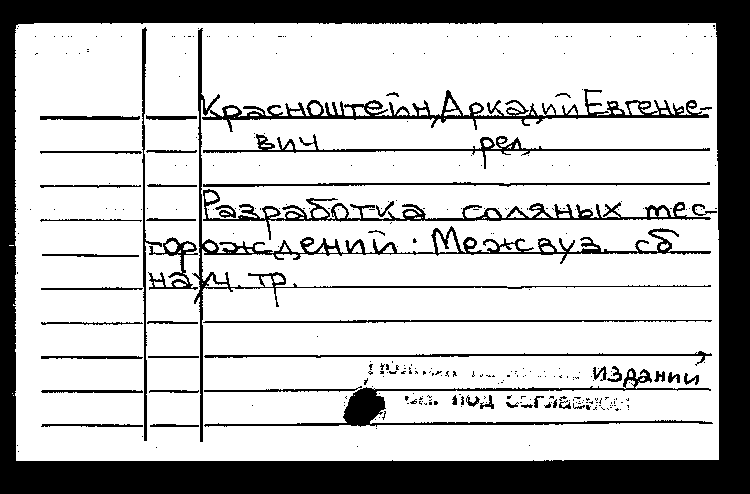 Красноштейн, Аркадий Евгенье-
вич ред.
Разработка соляных мес-
торождений: Межвуз. сб
науч. тр.
изданий
см. под заглавием